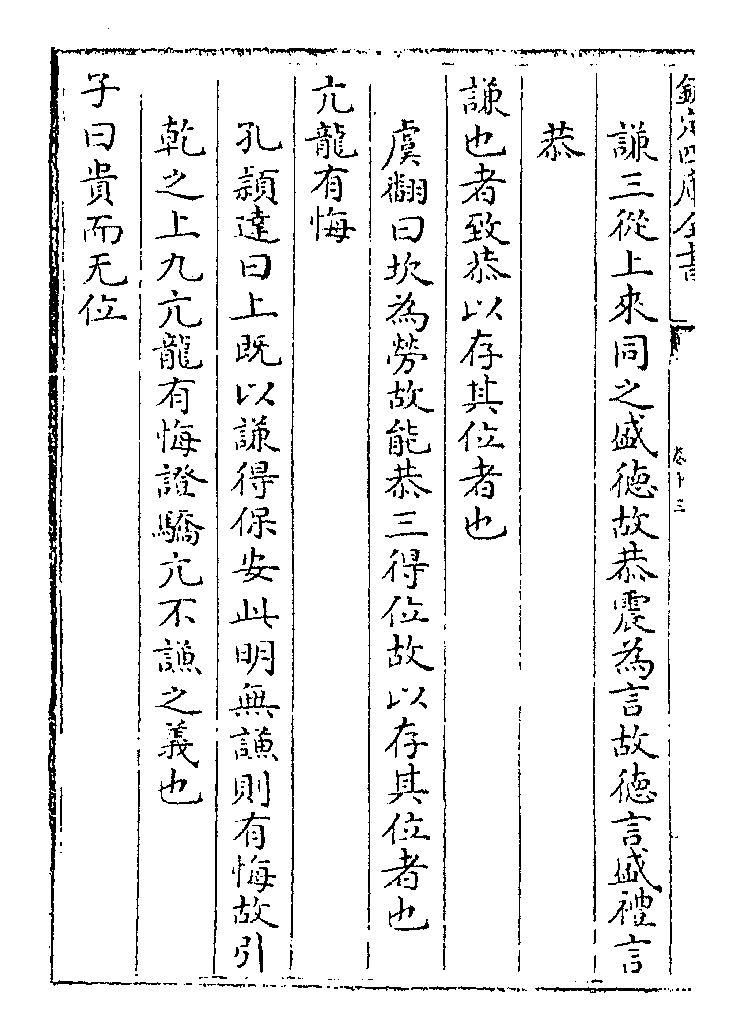 欽定四庫全書
卷十三
謙三從上來同之盛徳故恭震為言故徳言盛禮言
恭
謙也者致恭以存其位者也
虞翻曰坎為勞故能恭三得位故以存其位者也
亢龍有悔
孔頴達曰上既以謙得保安此明無謙則有悔故引
乾之上九亢龍有悔證驕亢不謙之義也
子曰貴而无位